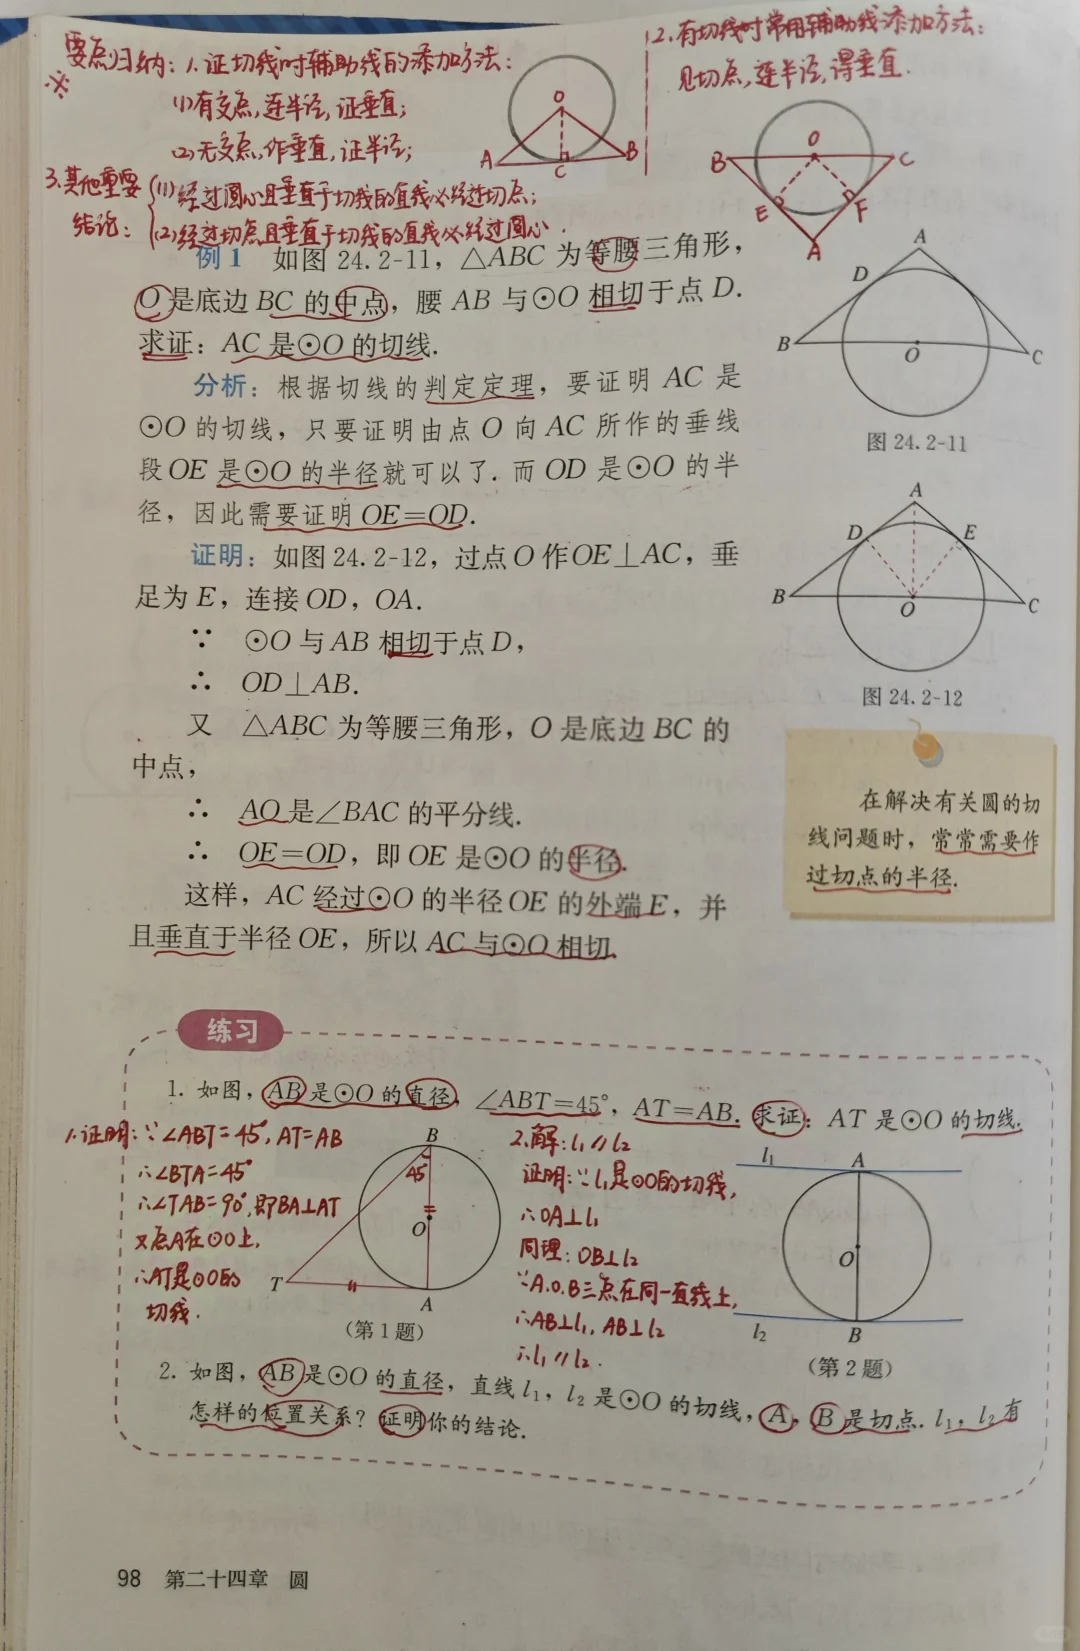 要点归纳：1.证切线时辅助线的添加方法：
※
(1)有交点,连半径,证垂直;
(2)无交点,作垂直,证半径;
O
A
C
B
2.有切线时常用辅助线添加方法：
见切点,连半径,得垂直.
B
O
C
E
F
A
3.其他重要
结论：
(1)经过圆心且垂直于切线的直线必经过切点;
(2)经过切点且垂直于切线的直线必经过圆心.
例1 如图24.2-11，△ABC为等腰三角形，
O是底边BC的中点，腰AB与⊙O相切于点D.
求证：AC是⊙O的切线.
分析：根据切线的判定定理，要证明AC是
⊙O的切线，只要证明由点O向AC所作的垂线
段OE是⊙O的半径就可以了.而OD是⊙O的半
径，因此需要证明OE=OD.
A
D
B
O
C
图24.2-11
证明：如图24.2-12，过点O作OE⊥AC，垂
足为E，连接OD，OA.
∵ ⊙O与AB相切于点D，
∴ OD⊥AB.
又 △ABC为等腰三角形，O是底边BC的
中点，
∴ AO是∠BAC的平分线.
∴ OE=OD，即OE是⊙O的半径.
这样，AC经过⊙O的半径OE的外端E，并
且垂直于半径OE，所以AC与⊙O相切.
A
D
E
B
O
C
图24.2-12
在解决有关圆的切
线问题时，常常需要作
过切点的半径.
练习
1. 如图，AB是⊙O的直径，∠ABT=45°，AT=AB.求证：AT是⊙O的切线.
1.证明：∵∠ABT=45°,AT=AB
∴∠BTA=45°
∴∠TAB=90°,即BA⊥AT
又点A在⊙O上,
∴AT是⊙O的
切线.
B
45°
O
T
A
(第1题)
2.解：l₁∥l₂
证明：∵l₁是⊙O的切线,
∴OA⊥l₁
同理：OB⊥l₂
∵A.O.B三点在同一直线上,
∴AB⊥l₁,AB⊥l₂
∴l₁∥l₂.
l₁
A
O
l₂
B
(第2题)
2. 如图，AB是⊙O的直径，直线l₁，l₂是⊙O的切线，A，B是切点.l₁，l₂有
怎样的位置关系？证明你的结论.
98 第二十四章 圆